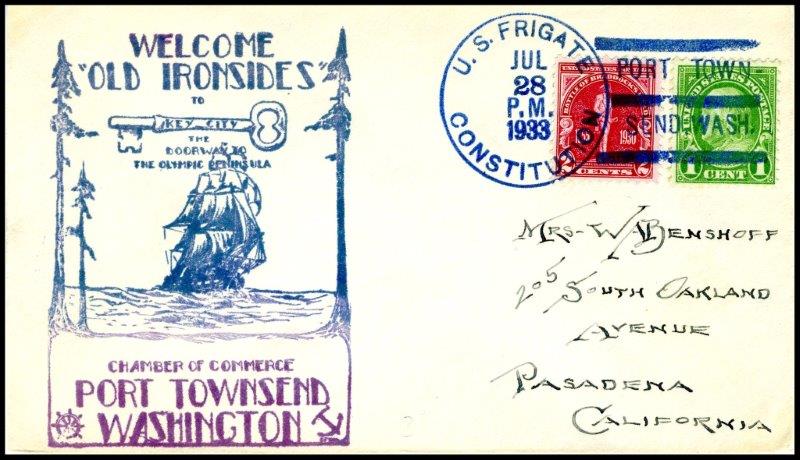 WELCOME
"OLD IRONSIDES"
TO
KEY CITY
THE
DOORWAY TO
THE OLYMPIC PENINSULA
CHAMBER OF COMMERCE
PORT TOWNSEND
WASHINGTON
U.S. FRIGATE
JUL
28
P.M.
1933
CONSTITUTION
PORT TOWN
SEND, WASH.
UNITED STATES POSTAGE
BATTLE OF BRADDOCK'S FIELD
1930
2 CENTS 2
UNITED STATES POSTAGE
1 CENT 1
MRS. W A BENSHOFF
205 SOUTH OAKLAND
AVENUE
PASADENA
CALIFORNIA